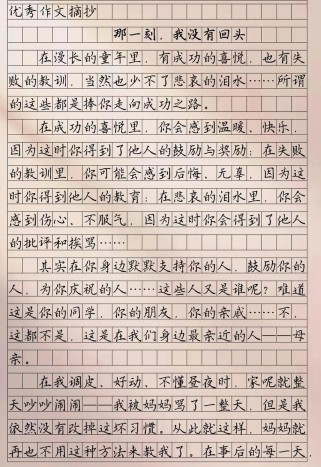 优秀作文摘抄
那一刻，我没有回头
在漫长的童年里，有成功的喜悦，也有失
败的教训，当然也少不了悲哀的泪水……所谓
的这些都是捧你走向成功之路。
在成功的喜悦里，你会感到温暖、快乐，
因为这时你得到了他人的鼓励与奖励；在失败
的教训里，你可能会感到后悔、无辜，因为这
时你得到他人的教育；在悲哀的泪水里，你会
感到伤心、不服气，因为这时你会得到了他人
的批评和挨骂……
其实在你身边默默支持你的人，鼓励你的
人，为你庆祝的人……这些人又是谁呢？难道
这是你的同学，你的朋友，你的亲戚……不，
这都不是，这是在我们身边最亲近的人——母
亲。
在我调皮、好动、不懂昼夜时，家呢就整
天吵吵闹闹——我被妈妈骂了一整天，但是我
依然没有改掉这坏习惯。从此就这样，妈妈就
再也不用这种方法来教我了。在事后的每一天，